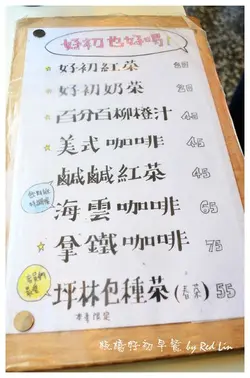 好初也好喝!
☆ 好初紅茶 20
☆ 好初奶茶 25
百分百柳橙汁 45
☆ 美式咖啡 45
鹹鹹紅茶 45
海雲咖啡 65
☆ 拿鐵咖啡 75
坪林包種茶(春茶) 55
本季限定
板橋好初早餐 by Red Lin